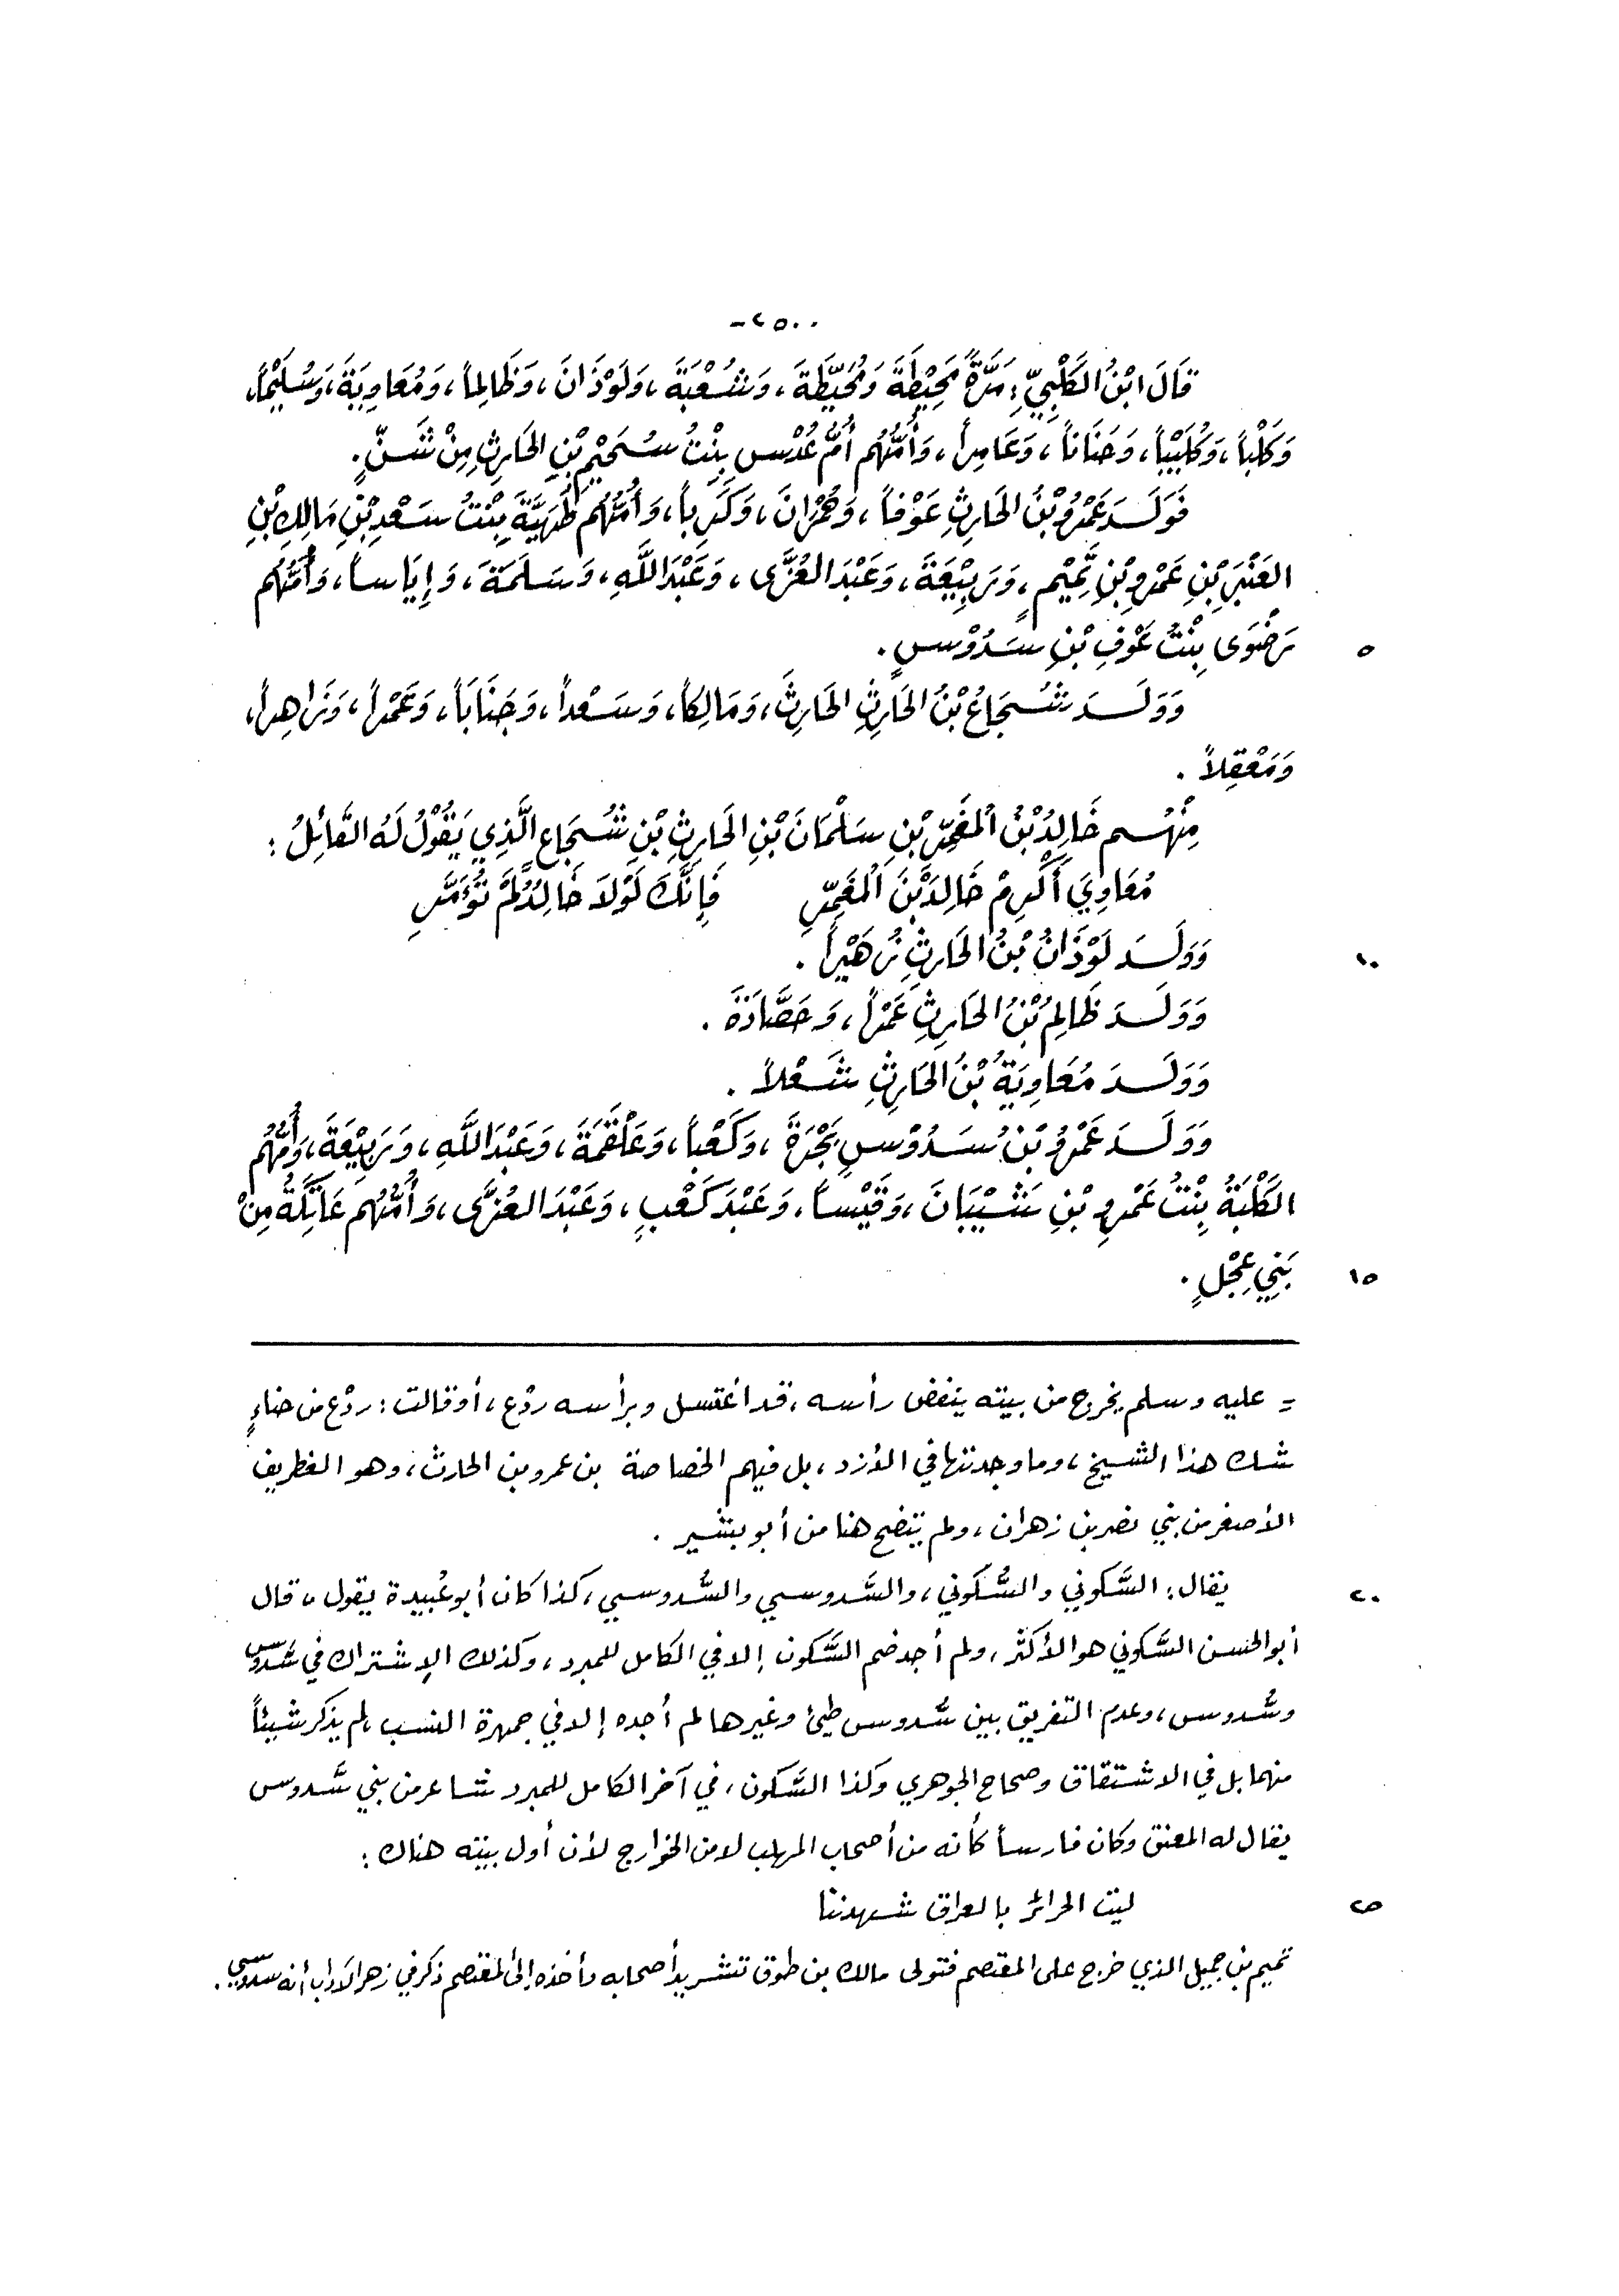 -٢٥٠٠
قَالَ ابْنُ الكَلْبِيِّ: مَرَّةً مَحِيْطَةَ وَمُحَيِّطَةَ، وَشُعْبَةَ، وَلَوْذَانَ، وَظَالِماً، وَمُعَاوِيَةَ، وَسُلَيْماً،
وَكَلْباً، وَكُلَيْباً، وَحَنَاناً، وَعَامِراً، وَأُمُّهُم أُمُّ عُدْسٍ بِنْتُ سُحَيْمِ بْنِ الحَارِثِ مِنْ شَنٍّ.
فَوَلَدَ عَمْرُو بْنُ الحَارِثِ عَوْفاً، وَهُمْرَانَ، وَكَرِباً، وَأُمُّهُم طُهَيَّةُ بِنْتُ سَعْدِ بْنِ مَالِكِ بْنِ
العَنْبَرِ بْنِ عَمْرِو بْنِ تَمِيْمٍ، وَرَبِيْعَةَ، وَعَبْدَ العُزَّى، وَعَبْدَ اللَّهِ، وَسَلَمَةَ، وَإِيَاساً، وَأُمُّهُم
رَضْوَى بِنْتُ عَوْفِ بْنِ سَدُوْسٍ. ٥
وَوَلَدَ شُجَاعُ بْنُ الحَارِثِ الحَارِثَ، وَمَالِكاً، وَسَعْداً، وَجَنَاباً، وَعَمْراً، وَزَاهِراً،
وَمَعْقِلاً.
مِنْهُم خَالِدُ بْنُ المُعَمِّرِ بْنِ سَلْمَانَ بْنِ الحَارِثِ بْنِ شُجَاعٍ الَّذِي يَقُوْلُ لَهُ القَائِلُ:
مُعَاوِيَ أَكْرِمْ خَالِدَ بْنَ المُعَمِّرِ فَإِنَّكَ لَوْلاَ خَالِدٌ لَمْ تُؤَمَّرِ
وَوَلَدَ لَوْذَانُ بْنُ الحَارِثِ زُهَيْراً. ١٠
وَوَلَدَ ظَالِمُ بْنُ الحَارِثِ عَمْراً، وَحَصَّادَةَ.
وَوَلَدَ مُعَاوِيَةُ بْنُ الحَارِثِ شَعْلاً.
وَوَلَدَ عَمْرُو بْنُ سَدُوْسٍ بَجْرَةَ، وَكَعْباً، وَعَلْقَمَةَ، وَعَبْدَ اللَّهِ، وَرَبِيْعَةَ، وَأُمُّهُم
الكَلْبَةُ بِنْتُ عَمْرِو بْنِ شَيْبَانَ، وَقَيْساً، وَعَبْدَ كَعْبٍ، وَعَبْدَ العُزَّى، وَأُمُّهُم عَاتِكَةُ مِنْ
بَنِي عِجْلٍ. ١٥
= عليه وسلم يخرج من بيته ينفض رأسه، قد اغتسل وبرأسه ردْع، أو قالت: ردْع من حناءٍ
شك هذا الشيخ، وما وجدتها في الأزد، بل فيهم الخصاصة بن عمرو بن الحارث، وهو الغطريف
الأصغر من بني نصر بن زهران، ولم يتضح هنا من أبو بشير.
يقال: السَّكوني والسُّكوني، والسَّدوسي والسُّدوسي، كذا كان أبو عُبيدة يقول، قال ٢٠
أبو الحسن السَّكوني هو الأكثر، ولم أجد ضم السَّكون إلا في الكامل للمبرد، وكذلك الإشتراك في سَدوس
وسُدوس، وعدم التفريق بين سُدوس طيئ وغيرها لم أجده إلا في جمهرة النسب، لم يذكر شيئاً
منهما بل في الاشتقاق وصحاح الجوهري وكذا السَّكون، في آخر الكامل للمبرد شاعر من بني سَدوس
يقال له المعنق وكان فارساً كأنه من أصحاب المهلب لا من الخوارج لأن أول بيته هناك:
ليت الحرائر بالعراق شهدننا ٢٥
تميم بن جميل الذي خرج على المعتصم فتولى مالك بن طوق تشريد أصحابه وأخذه إلى المعتصم ذكر في زهر الآداب أنه سدوسي.